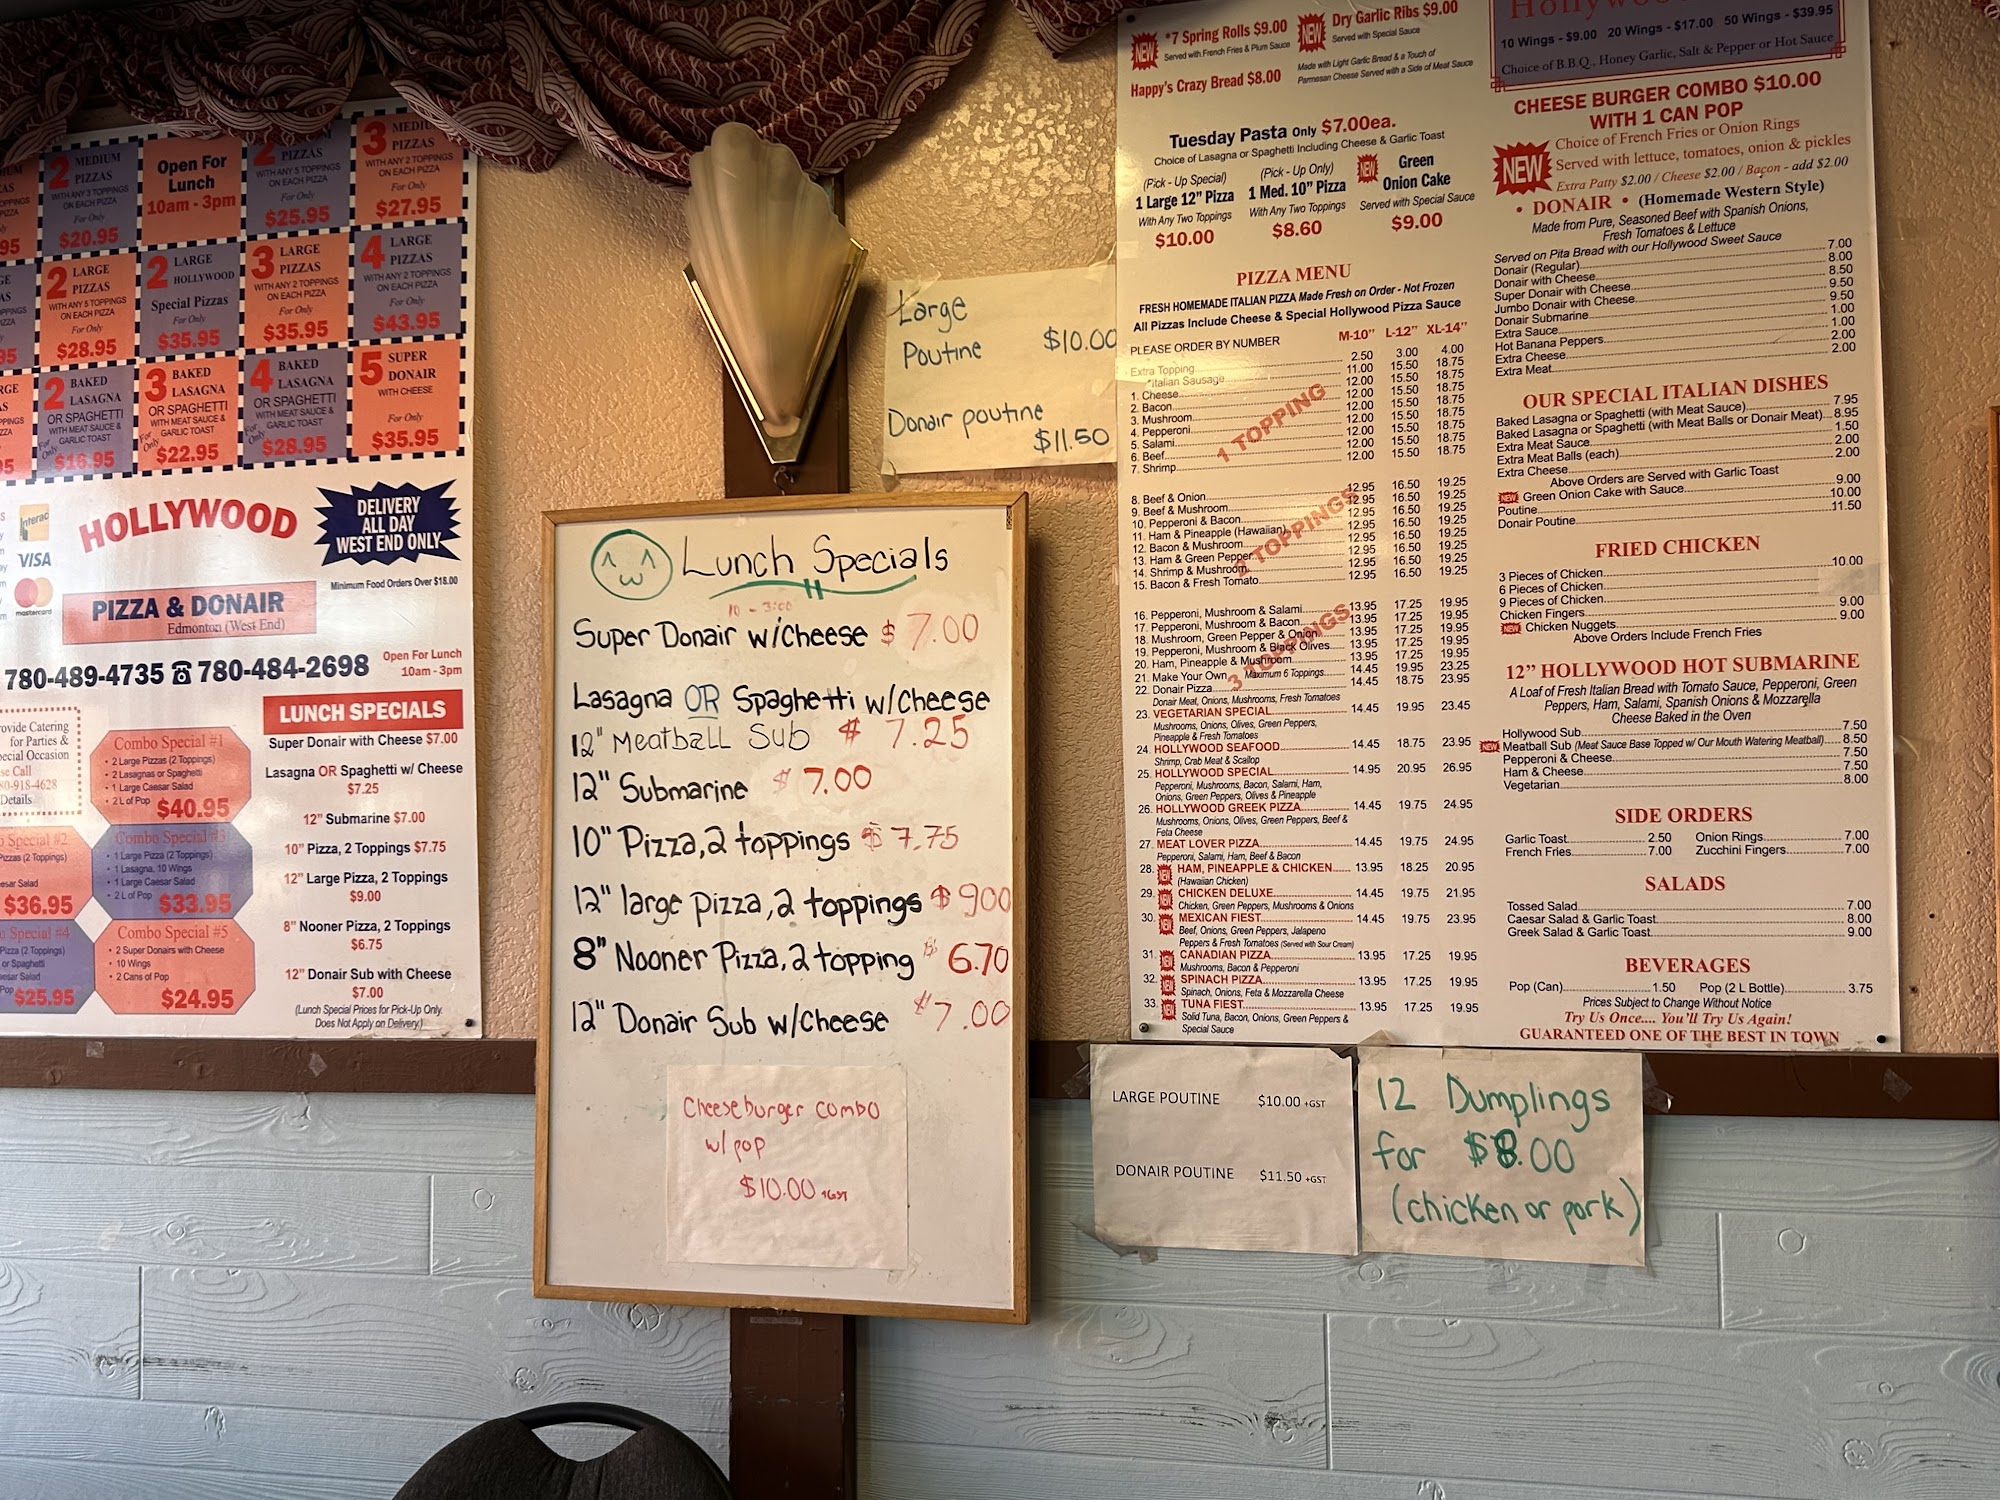 2 MEDIUM PIZZAS
WITH ANY 3 TOPPINGS
ON EACH PIZZA
For Only
$20.95
Open For
Lunch
10am - 3pm
2
PIZZAS
WITH ANY 5 TOPPINGS
ON EACH PIZZA
For Only
$25.95
3 MEDIUM PIZZAS
WITH ANY 2 TOPPINGS
ON EACH PIZZA
For Only
$27.95
2 LARGE PIZZAS
WITH ANY 5 TOPPINGS
ON EACH PIZZA
For Only
$28.95
2 LARGE HOLLYWOOD
Special Pizzas
For Only
$35.95
3 LARGE PIZZAS
WITH ANY 2 TOPPINGS
ON EACH PIZZA
For Only
$35.95
4 LARGE PIZZAS
WITH ANY 2 TOPPINGS
ON EACH PIZZA
For Only
$43.95
2 BAKED LASAGNA
OR SPAGHETTI
WITH MEAT SAUCE &
GARLIC TOAST
For Only
$16.95
3 BAKED LASAGNA
OR SPAGHETTI
WITH MEAT SAUCE &
GARLIC TOAST
For Only
$22.95
4 BAKED LASAGNA
OR SPAGHETTI
WITH MEAT SAUCE &
GARLIC TOAST
For Only
$28.95
5 SUPER DONAIR
WITH CHEESE
For Only
$35.95
Interac
VISA
mastercard
HOLLYWOOD
PIZZA & DONAIR
Edmonton (West End)
DELIVERY
ALL DAY
WEST END ONLY
Minimum Food Orders Over $18.00
780-489-4735 ☎ 780-484-2698
Open For Lunch
10am - 3pm
Provide Catering
for Parties &
Special Occasion
Call
80-918-4628
Details
Combo Special #1
• 2 Large Pizzas (2 Toppings)
• 2 Lasagnas or Spaghetti
• 1 Large Caesar Salad
• 2 L of Pop
$40.95
Special #2
Pizzas (2 Toppings)
Salad
$36.95
Combo Special #3
• 1 Large Pizza (2 Toppings)
• 1 Lasagna, 10 Wings
• 1 Large Caesar Salad
• 2 L of Pop
$33.95
Special #4
Pizza (2 Toppings)
or Spaghetti
Salad
Pop
$25.95
Combo Special #5
• 2 Super Donairs with Cheese
• 10 Wings
• 2 Cans of Pop
$24.95
LUNCH SPECIALS
Super Donair with Cheese $7.00
Lasagna OR Spaghetti w/ Cheese
$7.25
12" Submarine $7.00
10" Pizza, 2 Toppings $7.75
12" Large Pizza, 2 Toppings
$9.00
8" Nooner Pizza, 2 Toppings
$6.75
12" Donair Sub with Cheese
$7.00
(Lunch Special Prices for Pick-Up Only.
Does Not Apply on Delivery.)
Lunch Specials
10 - 3:00
Super Donair w/Cheese $ 7.00
Lasagna OR Spaghetti w/Cheese
12" Meatball Sub $ 7.25
12" Submarine $ 7.00
10" Pizza, 2 toppings $ 7.75
12" large pizza, 2 toppings $ 900
8" Nooner Pizza, 2 topping $ 6.70
12" Donair Sub w/Cheese $7.00
Cheeseburger combo
w/ pop
$10.00 +GST
Large
Poutine $10.00
Donair poutine
$11.50
NEW *7 Spring Rolls $9.00
Served with French Fries & Plum Sauce
NEW Dry Garlic Ribs $9.00
Served with Special Sauce
Happy's Crazy Bread $8.00
Made with Light Garlic Bread & a Touch of
Parmesan Cheese Served with a Side of Meat Sauce
Tuesday Pasta Only $7.00ea.
Choice of Lasagna or Spaghetti Including Cheese & Garlic Toast
(Pick - Up Special)
1 Large 12" Pizza
With Any Two Toppings
$10.00
(Pick - Up Only)
1 Med. 10" Pizza
With Any Two Toppings
$8.60
NEW
Green
Onion Cake
Served with Special Sauce
$9.00
PIZZA MENU
FRESH HOMEMADE ITALIAN PIZZA Made Fresh on Order - Not Frozen
All Pizzas Include Cheese & Special Hollywood Pizza Sauce
PLEASE ORDER BY NUMBER M-10" L-12" XL-14"
Extra Topping 2.50 3.00 4.00
*Italian Sausage
1. Cheese 11.00 15.50 18.75
2. Bacon 12.00 15.50 18.75
3. Mushroom 12.00 15.50 18.75
4. Pepperoni 12.00 15.50 18.75
5. Salami 12.00 15.50 18.75
6. Beef 12.00 15.50 18.75
7. Shrimp 12.00 15.50 18.75
1 TOPPING
8. Beef & Onion 12.95 16.50 19.25
9. Beef & Mushroom 12.95 16.50 19.25
10. Pepperoni & Bacon 12.95 16.50 19.25
11. Ham & Pineapple (Hawaiian) 12.95 16.50 19.25
12. Bacon & Mushroom 12.95 16.50 19.25
13. Ham & Green Pepper 12.95 16.50 19.25
14. Shrimp & Mushroom 12.95 16.50 19.25
15. Bacon & Fresh Tomato 12.95 16.50 19.25
2 TOPPINGS
16. Pepperoni, Mushroom & Salami 13.95 17.25 19.95
17. Pepperoni, Mushroom & Bacon 13.95 17.25 19.95
18. Mushroom, Green Pepper & Onion 13.95 17.25 19.95
19. Pepperoni, Mushroom & Black Olives 13.95 17.25 19.95
20. Ham, Pineapple & Mushroom 13.95 17.25 19.95
21. Make Your Own Maximum 6 Toppings 14.45 19.95 23.25
22. Donair Pizza 14.45 18.75 23.95
Donair Meat, Onions, Mushrooms, Fresh Tomatoes
3 TOPPINGS
23. VEGETARIAN SPECIAL 14.45 19.95 23.45
Mushrooms, Onions, Olives, Green Peppers,
Pineapple & Fresh Tomatoes
24. HOLLYWOOD SEAFOOD 14.45 18.75 23.95
Shrimp, Crab Meat & Scallop
25. HOLLYWOOD SPECIAL 14.95 20.95 26.95
Pepperoni, Mushrooms, Bacon, Salami, Ham,
Onions, Green Peppers, Olives & Pineapple
26. HOLLYWOOD GREEK PIZZA 14.45 19.75 24.95
Mushrooms, Onions, Olives, Green Peppers, Beef &
Feta Cheese
27. MEAT LOVER PIZZA 14.45 19.75 24.95
Pepperoni, Salami, Ham, Beef & Bacon
28. HAM, PINEAPPLE & CHICKEN 13.95 18.25 20.95
(Hawaiian Chicken)
29. CHICKEN DELUXE 14.45 19.75 21.95
Chicken, Green Peppers, Mushrooms & Onions
30. MEXICAN FIEST 14.45 19.75 23.95
Beef, Onions, Green Peppers, Jalapeno
Peppers & Fresh Tomatoes (Served with Sour Cream)
31. CANADIAN PIZZA 13.95 17.25 19.95
Mushrooms, Bacon & Pepperoni
32. SPINACH PIZZA 13.95 17.25 19.95
Spinach, Onions, Feta & Mozzarella Cheese
33. TUNA FIEST 13.95 17.25 19.95
Solid Tuna, Bacon, Onions, Green Peppers &
Special Sauce
Hollywood
10 Wings - $9.00 20 Wings - $17.00 50 Wings - $39.95
Choice of B.B.Q., Honey Garlic, Salt & Pepper or Hot Sauce
CHEESE BURGER COMBO $10.00
WITH 1 CAN POP
NEW
Choice of French Fries or Onion Rings
Served with lettuce, tomatoes, onion & pickles
Extra Patty $2.00 / Cheese $2.00 / Bacon - add $2.00
• DONAIR • (Homemade Western Style)
Made from Pure, Seasoned Beef with Spanish Onions,
Fresh Tomatoes & Lettuce
Served on Pita Bread with our Hollywood Sweet Sauce
Donair (Regular) 7.00
Donair with Cheese 8.00
Super Donair with Cheese 8.50
Jumbo Donair with Cheese 9.50
Donair Submarine 9.50
Extra Sauce 1.00
Hot Banana Peppers 1.00
Extra Cheese 2.00
Extra Meat 2.00
OUR SPECIAL ITALIAN DISHES
Baked Lasagna or Spaghetti (with Meat Sauce) 7.95
Baked Lasagna or Spaghetti (with Meat Balls or Donair Meat) 8.95
Extra Meat Sauce 1.50
Extra Meat Balls (each) 2.00
Extra Cheese 2.00
Above Orders are Served with Garlic Toast
NEW Green Onion Cake with Sauce 9.00
Poutine 10.00
Donair Poutine 11.50
FRIED CHICKEN
3 Pieces of Chicken 10.00
6 Pieces of Chicken
9 Pieces of Chicken
Chicken Fingers 9.00
NEW Chicken Nuggets 9.00
Above Orders Include French Fries
12" HOLLYWOOD HOT SUBMARINE
A Loaf of Fresh Italian Bread with Tomato Sauce, Pepperoni, Green
Peppers, Ham, Salami, Spanish Onions & Mozzarella
Cheese Baked in the Oven
Hollywood Sub 7.50
NEW Meatball Sub (Meat Sauce Base Topped w/ Our Mouth Watering Meatball) 8.50
Pepperoni & Cheese 7.50
Ham & Cheese 7.50
Vegetarian 8.00
SIDE ORDERS
Garlic Toast 2.50 Onion Rings 7.00
French Fries 7.00 Zucchini Fingers 7.00
SALADS
Tossed Salad 7.00
Caesar Salad & Garlic Toast 8.00
Greek Salad & Garlic Toast 9.00
BEVERAGES
Pop (Can) 1.50 Pop (2 L Bottle) 3.75
Prices Subject to Change Without Notice
Try Us Once.... You'll Try Us Again!
GUARANTEED ONE OF THE BEST IN TOWN
LARGE POUTINE $10.00 +GST
DONAIR POUTINE $11.50 +GST
12 Dumplings
for $8.00
(chicken or pork)